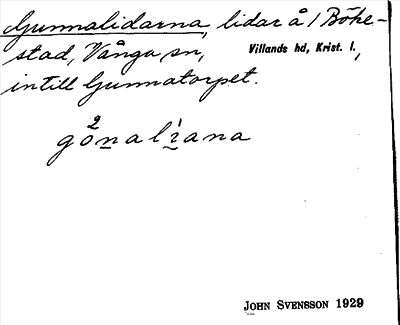 Gunnalidarna, lidar å / Böke-
stad, Vånga sn, Villands hd, Krist. l.,
intill Gunnatorpet.
gònalìana
JOHN SVENSSON 1929